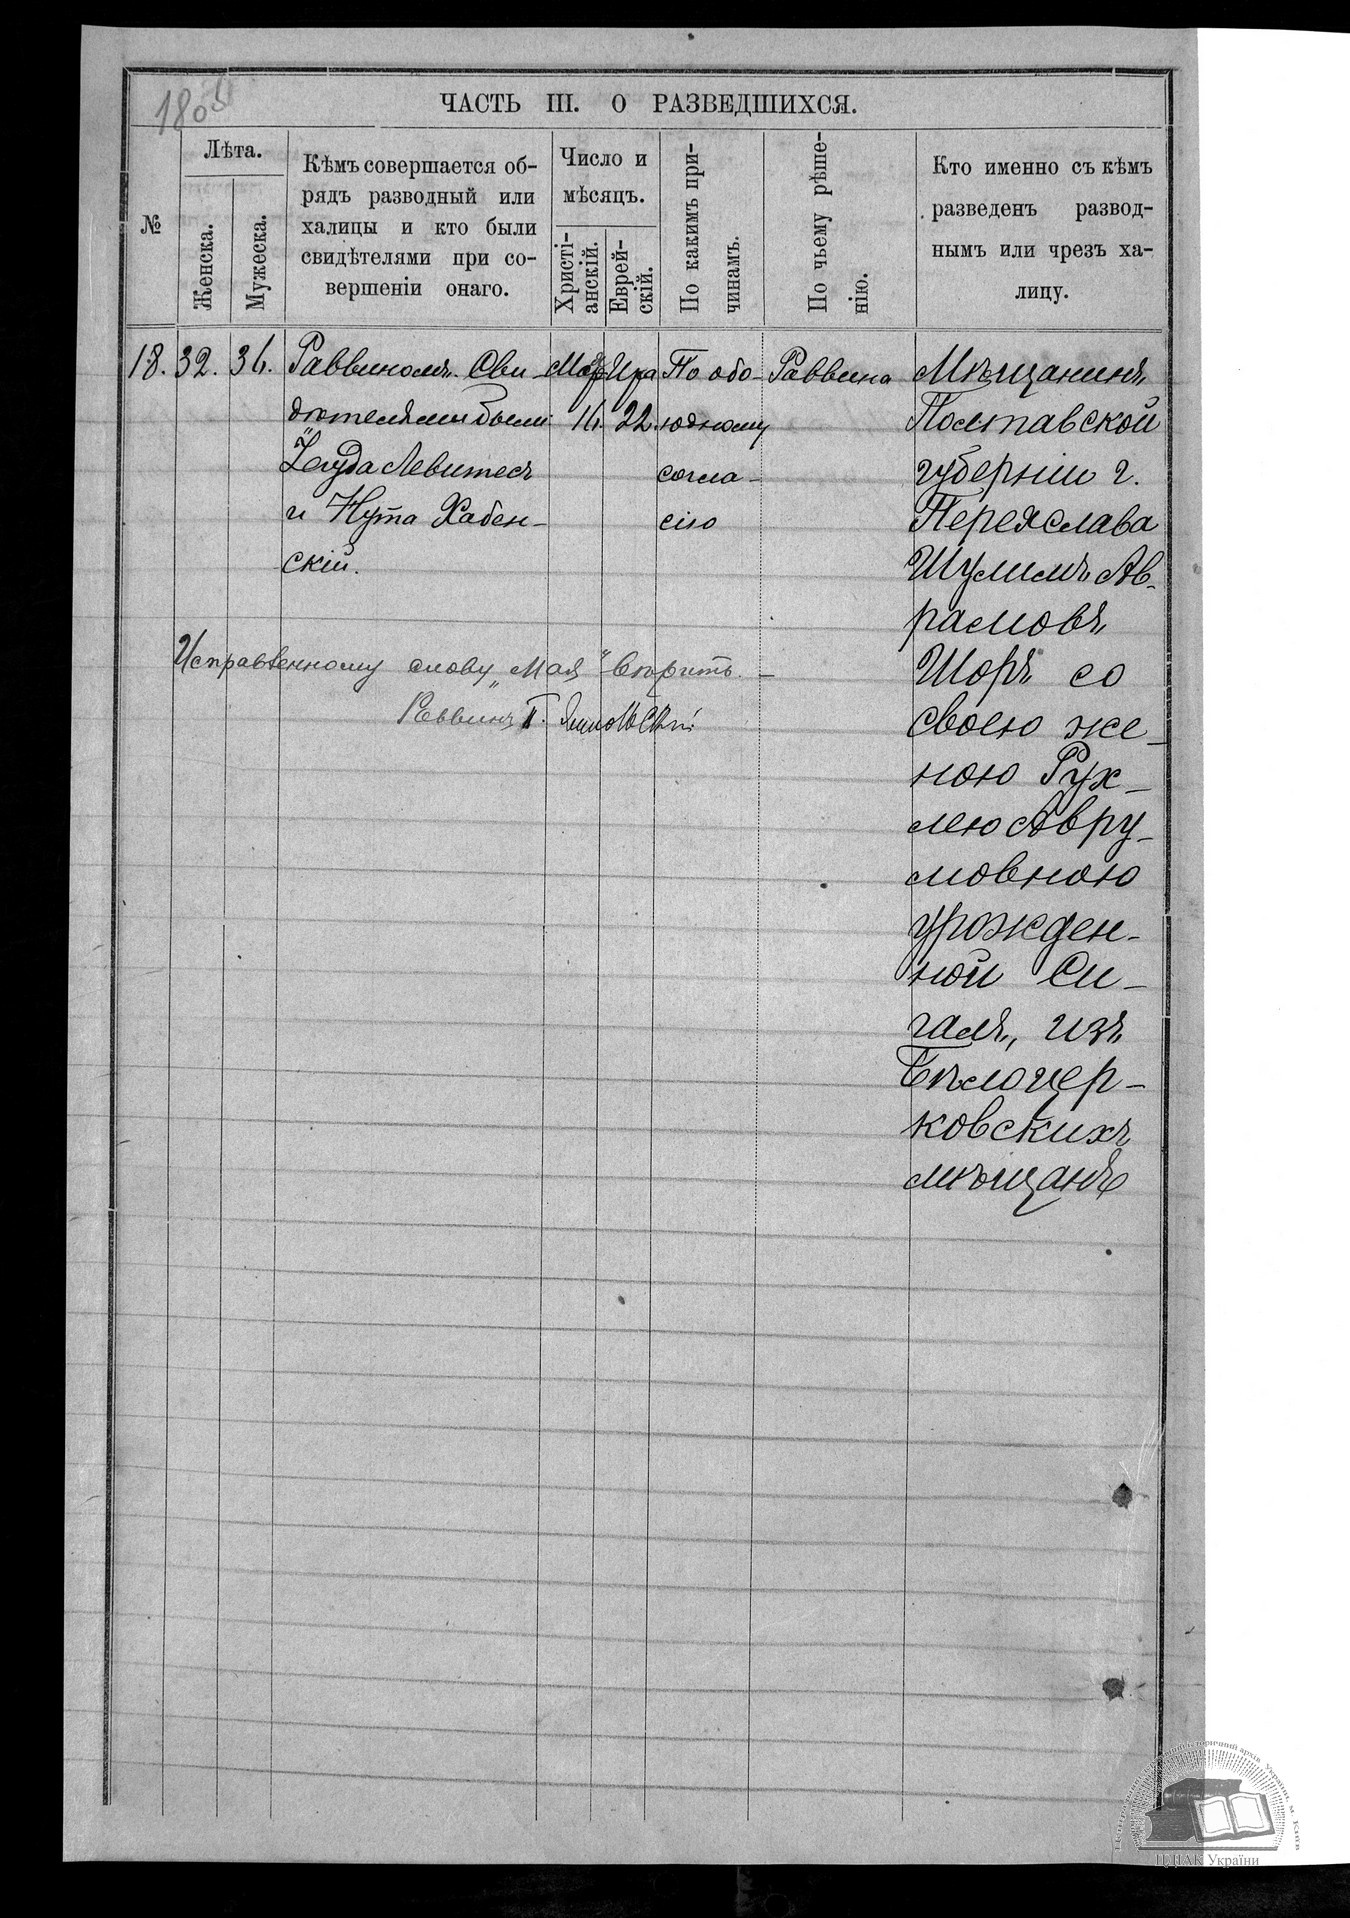 1805
ЧАСТЬ III. О РАЗВЕДШИХСЯ.
№
Лѣта.
Женска.
Мужеска.
Кѣмъ совершается об-
рядъ разводный или
халицы и кто были
свидѣтелями при со-
вершеніи онаго.
Число и
мѣсяцъ.
Христі-
анскій.
Еврей-
скій.
По какимъ при-
чинамъ.
По чьему рѣше-
нію.
Кто именно съ кѣмъ
разведенъ развод-
нымъ или чрезъ ха-
лицу.
18.
32.
36.
Раввиномъ. Сви-
дѣтелями были
Іегуда Левитесъ
и Нута Хабен-
скій.
16.
Ира
22.
По обо-
юдному
согла-
сію
Раввина
Мѣщанинъ
Полтавской
губерніи г.
Переяслава
Шулимъ Ав-
рамовъ
Шоръ со
своею же-
ною Рух-
лею Авру-
мовною
урожден-
ной Си-
галъ, изъ
Бѣлоцер-
ковскихъ
мѣщанъ
Исправленному слову „Мая" вѣрить. -
Раввинъ
ЦДІАК України